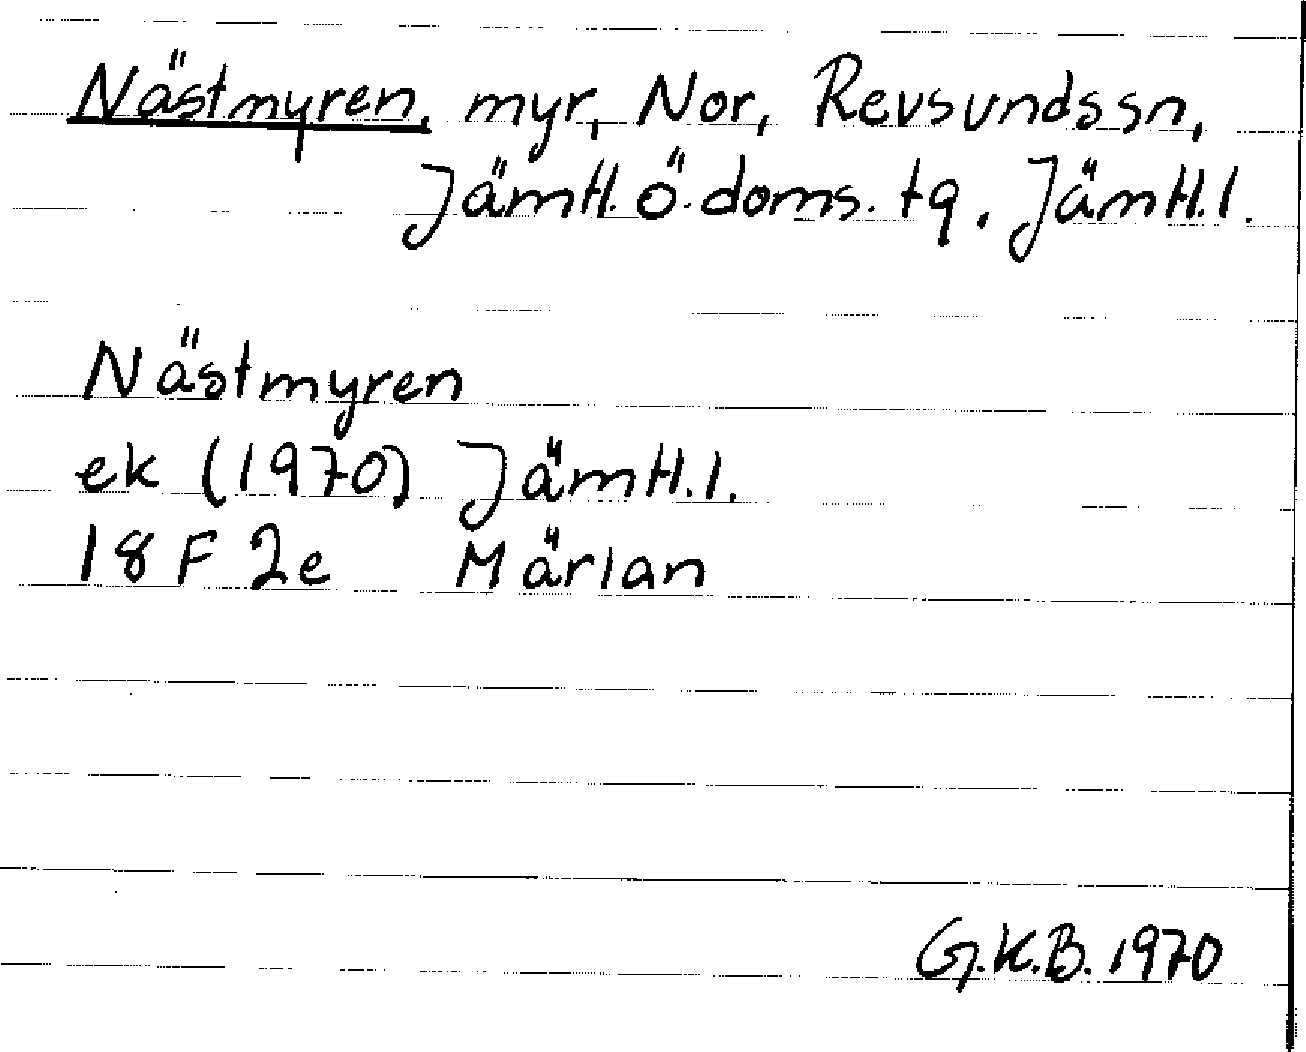 Nästmyren, myr, Nor, Revsundssn,
Jämtl. Ö. doms. tg. Jämtl. l.
Nästmyren
ek (1970) Jämtl. l.
18 F 2e Märlan
G.K.B. 1970